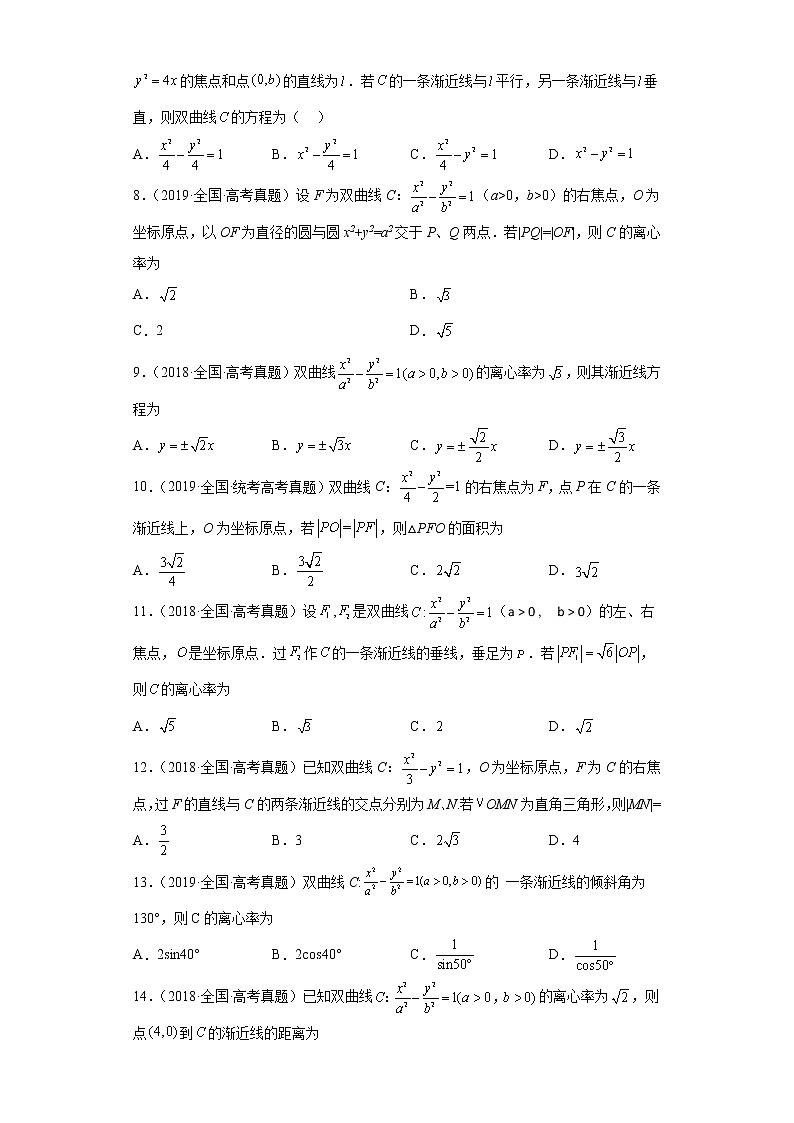 y² = 4x的焦点和点(0,b)的直线为l．若C的一条渐近线与l平行，另一条渐近线与l垂
直，则双曲线C的方程为（　）
A．x²/4 − y²/4 = 1 B．x² − y²/4 = 1 C．x²/4 − y² = 1 D．x² − y² = 1
8.（2019·全国·高考真题）设F为双曲线C：x²/a² − y²/b² = 1（a>0，b>0）的右焦点，O为
坐标原点，以OF为直径的圆与圆x²+y²=a²交于P、Q两点．若|PQ|=|OF|，则C的离心
率为
A．√2 B．√3
C．2 D．√5
9.（2018·全国·高考真题）双曲线x²/a² − y²/b² = 1(a > 0, b > 0)的离心率为√3，则其渐近线方
程为
A．y = ±√2x B．y = ±√3x C．y = ±√2/2 x D．y = ±√3/2 x
10.（2019·全国·统考高考真题）双曲线C：x²/4 − y²/2 =1的右焦点为F，点P在C的一条
渐近线上，O为坐标原点，若|PO| = |PF|，则△PFO的面积为
A．3√2/4 B．3√2/2 C．2√2 D．3√2
11.（2018·全国·高考真题）设F₁，F₂是双曲线C : x²/a² − y²/b² = 1（a > 0， b > 0）的左、右
焦点，O是坐标原点．过F₂作C的一条渐近线的垂线，垂足为P．若|PF₁| = √6|OP|，
则C的离心率为
A．√5 B．√3 C．2 D．√2
12.（2018·全国·高考真题）已知双曲线C：x²/3 − y² = 1，O为坐标原点，F为C的右焦
点，过F的直线与C的两条渐近线的交点分别为M、N.若∨OMN为直角三角形，则|MN|=
A．3/2 B．3 C．2√3 D．4
13.（2019·全国·高考真题）双曲线C: x²/a² − y²/b² = 1(a > 0, b > 0)的 一条渐近线的倾斜角为
130°，则C的离心率为
A．2sin40° B．2cos40° C．1/sin50° D．1/cos50°
14.（2018·全国·高考真题）已知双曲线C：x²/a² − y²/b² = 1(a > 0，b > 0)的离心率为√2，则
点(4,0)到C的渐近线的距离为